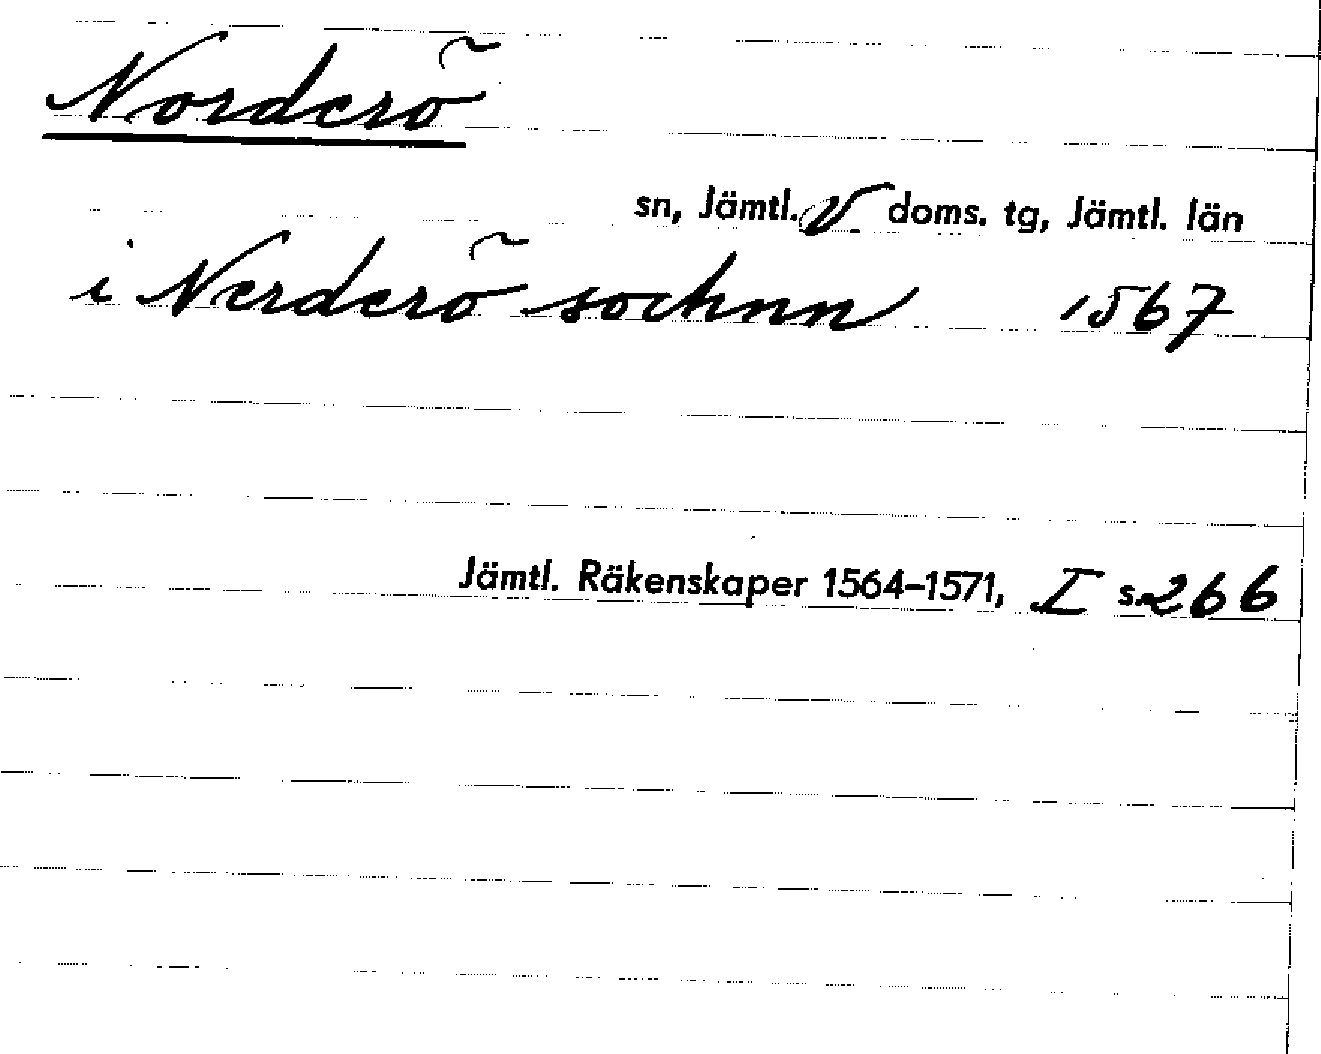 Norderö
sn, Jämtl. V doms. tg, Jämtl. län
i Nerderö sochnn 1567
Jämtl. Räkenskaper 1564-1571, I s. 266